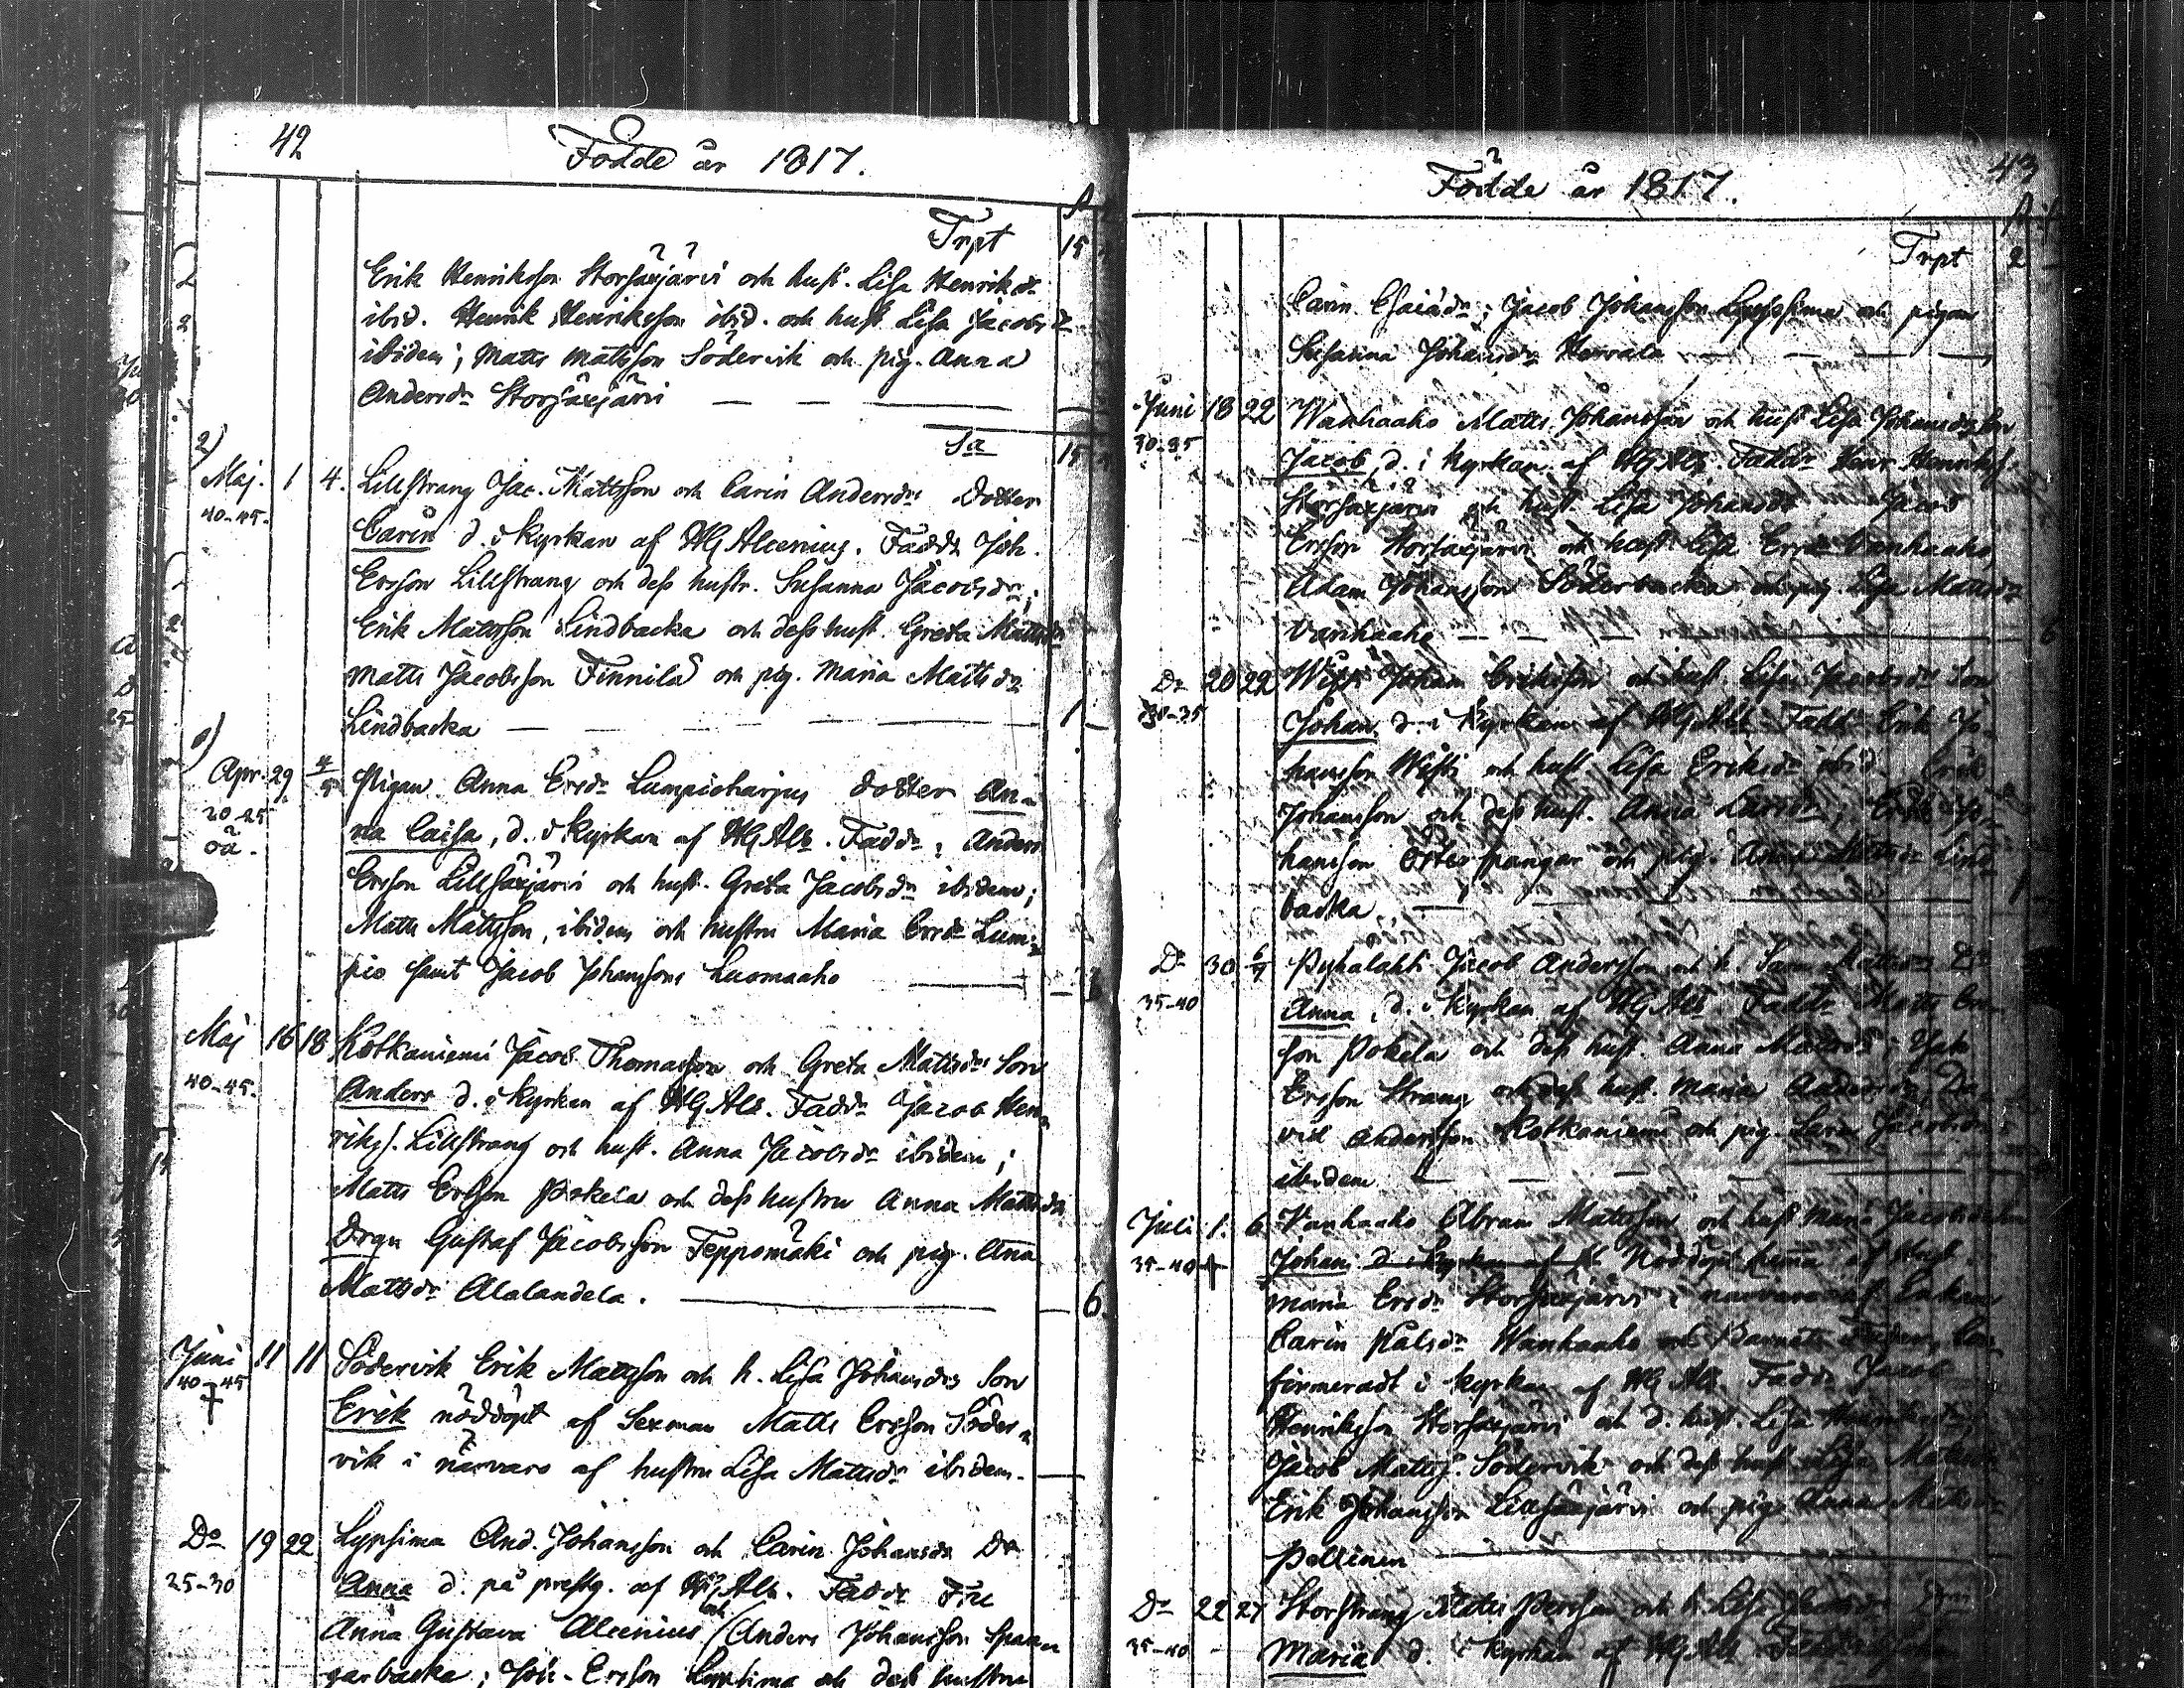 42
Födde år 1817.
Trpt 15
Erik Henriksson Storsäxjärvi och hust. Lisa Henriksdr
ibid. Henrik Henriksson ibid. och hust. Lisa Jacobsdr
ibidem; Matts Mattsson Södervik och pig. Anna
Andersdr Storsäxjärvi
Sa 15
2)
Maj. 1 4. Lillstrang Jac. Mattsson och Carin Andersdrs Dotter
40-45. Carin d. i Kyrkan af HG Alcenius. Faddr Joh.
Ersson Lillstrang och dess hustr. Susanna Jacobsdr;
Erik Mattsson Lindbacka och dess hust. Greta Mattsdr
Matts Jacobsson Finnilä och pig. Maria Mattsdr
Lindbacka 1
Apr. 29 4/5 Pigan Anna Ersdr Lumpioharjus Dotter An-
20-25 na Caisa, d. i Kyrkan af HG Als. Faddr: Anders
oä. Ersson Lillsäxjärvi och hust. Greta Jacobsdr ibidem;
Matts Mattsson, ibidem och hustru Maria Ersdr Lum-
pio samt Jacob Johansson Luomaaho
Maj 16 18 Kotkaniemi Jacob Thomasson och Greta Mattsdrs Son
40-45. Anders d. i Kyrkan af HG Als. Faddr Jacob Hen-
rikss. Lillstrang och hust. Anna Jacobsdr ibidem;
Matts Ersson Pokela och dess hustru Anna Mattsdr
Drgn Gustaf Jacobsson Teppomäki och pig. Anna
Mattsdr Alalandela. 6.
Juni 11 11 Södervik Erik Mattsson och h. Lisa Johansdrs Son
40-45 † Erik nöddöpt af Sexman Matts Ersson Söder-
vik i närvaro af hustru Lisa Mattsdr ibidem.
Do 19 22 Lypsima And. Johansson och Carin Johansdr Dr
25-30 Anna d. på prestg. af HG Als. Faddr Fru
Anna Gustava Alcenius och Anders Johansson Span-
garbacka; Joh. Ersson Lypsima och dess hustru
43
Födde år 1817.
Trpt 2
Carin Esaiadr; Jacob Johansson Lypsima och pigan
Susanna Johansdr Hervala
Juni 18 22 Wanhaaho Matts Johansson och hust Lisa Johansdrs Son
30-35 Jacob, d. i Kyrkan af HG Als. Faddr Henr. Henrikss.
Storsäxjärvi och hust. Lisa Johansdr Jacob
Ersson Storsäxjärvi och hust Lisa Ersdr Vanhaaho,
Adam Johansson Söderbacka och pig. Lisa Mattsdr
Vanhaaho 6
Dr 20 22 Johan Eriksson och hust. Lisa Jacobsdr Son
30-35 Johan, d. i Kyrkan af HG Als Faddr Erik Jo-
hansson och hust. Lisa Eriksdr ibid. Erik
Johansson och dess hust. Anna Larsdr; Erik Jo-
hansson Österspangar och pig. Anna Mattsdr Lind-
backa 1
Dr 30 6/7 Pyhälahti Jacob Andersson och h. Mattsdr Dr
35-40 Anna, d. i Kyrkan af HG Als. Faddr Matts Ers-
son Pokela och dess hust. Anna Mattsdr; Jak
Ersson Strang och dess hust. Maria Andersdr, Da-
vid Andersson Kotkaniemi och pig. Jacobsdr
ibidem
Juli 1. 6 Vanhaaho Abram Mattsson och hust Maria Jacobsdr Son
35-40 † Johan d. i Kyrkan af HG Nöddöpt hema af Hust.
Maria Ersdr Storsäxjärvi i närvaro af Enkan
Carin Pålsdr Wanhaaho och Barnets Fader, Con-
firmeradt i Kyrkan af HG Als. Faddr Jacob
Henriksson Storsäxjärvi och d. hust. Lisa Henriksdr
Jacob Mattss. Södervik och dess hust Lisa Mattsdr
Erik Johansson Lillsäxjärvi och pig. Anna Mattsdr
Pollinen
Dr 22 27 Storstrang Matts Persson och h. Lisa
35-40 Maria d. i Kyrkan af HG Als